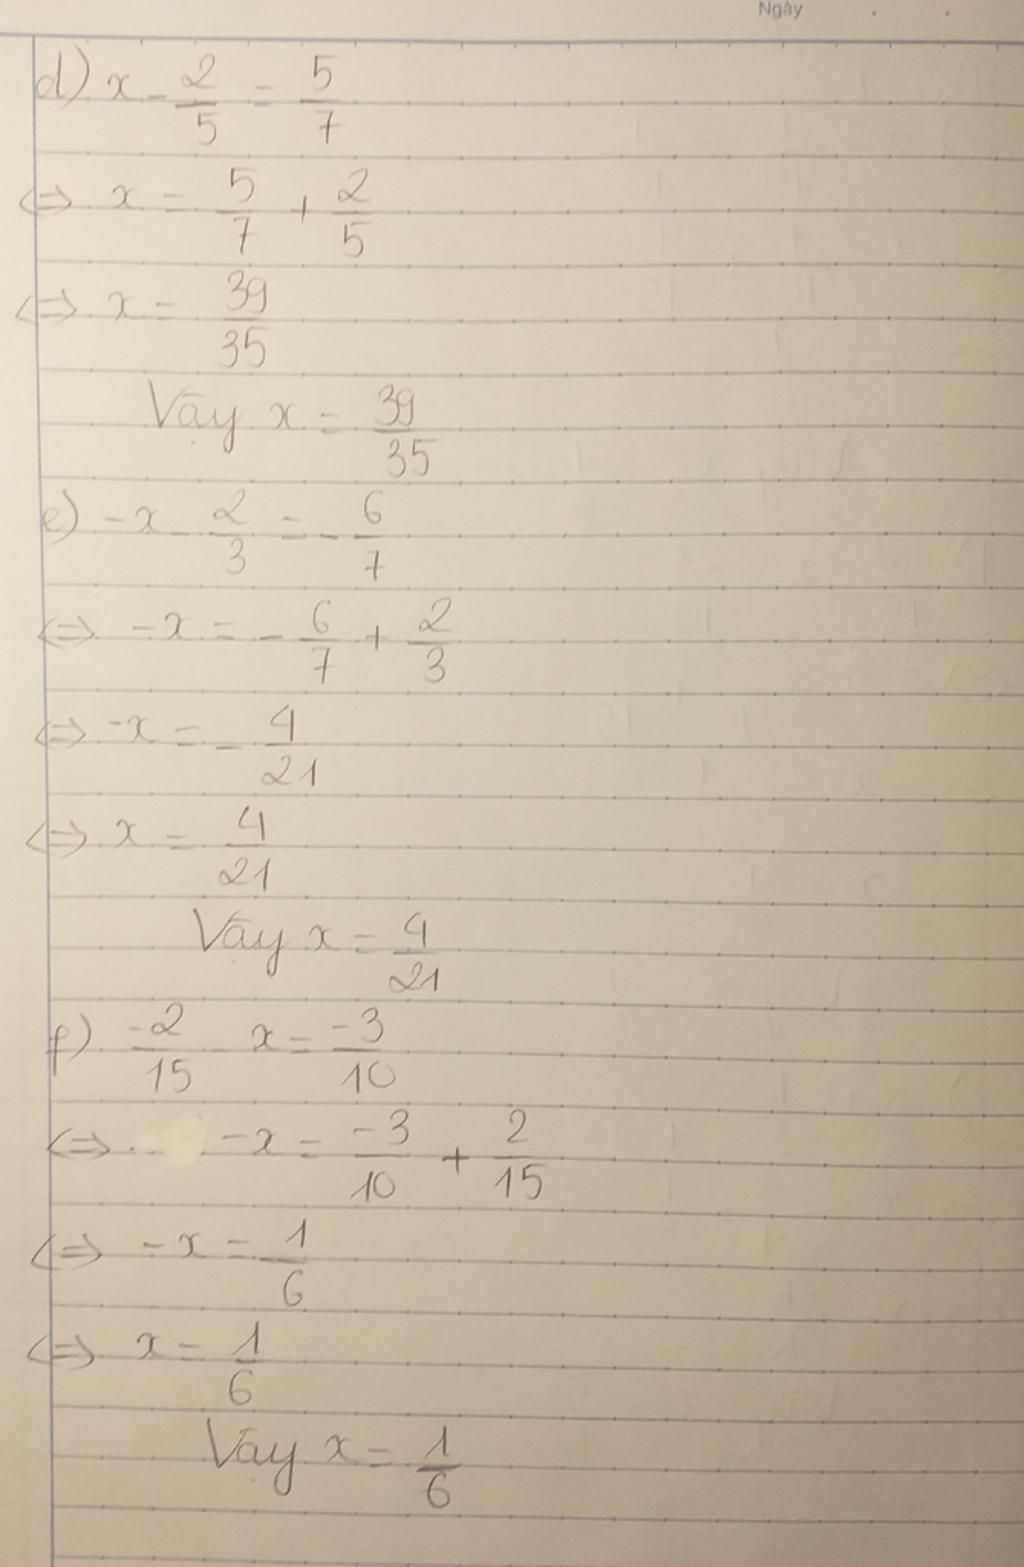 Ngày
d) x - 2/5 = 5/7
⇔ x = 5/7 + 2/5
⇔ x = 39/35
Vậy x = 39/35
e) -x - 2/3 = - 6/7
⇔ -x = - 6/7 + 2/3
⇔ -x = - 4/21
⇔ x = 4/21
Vậy x = 4/21
f) -2/15 - x = -3/10
⇔ -x = -3/10 + 2/15
⇔ -x = -1/6
⇔ x = 1/6
Vậy x = 1/6